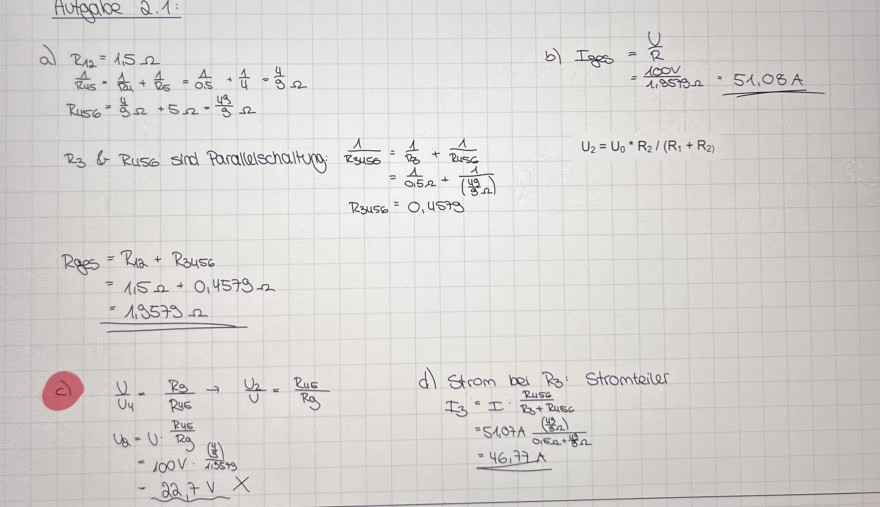 Aufgabe 2.1:
a) R12 = 1,5 Ω
1/R45 = 1/R4 + 1/R5 = 1/0,5 + 1/4 = 4/9 Ω
R456 = 4/9 Ω + 5 Ω = 49/9 Ω
R3 & R456 sind Parallelschaltung: 1/R3456 = 1/R3 + 1/R456
= 1/0,5Ω + 1/(49/9 Ω)
R3456 = 0,4579
Rges = R12 + R3456
= 1,5 Ω + 0,4579 Ω
= 1,9579 Ω
b) Iges = U/R
= 100V/1,9579Ω = 51,08 A
U2 = U0 * R2 / (R1 + R2)
c) U/U4 = Rg/R45 → U2/U = R45/Rg
U2 = U · R45/Rg
= 100V · (4/9)/1,9579
= 22,7 V X
d) Strom bei R3: Stromteiler
I3 = I · R456/R3 + R456
= 51,07A · (49/9 Ω)/0,5Ω + 49/9 Ω
= 46,77 A